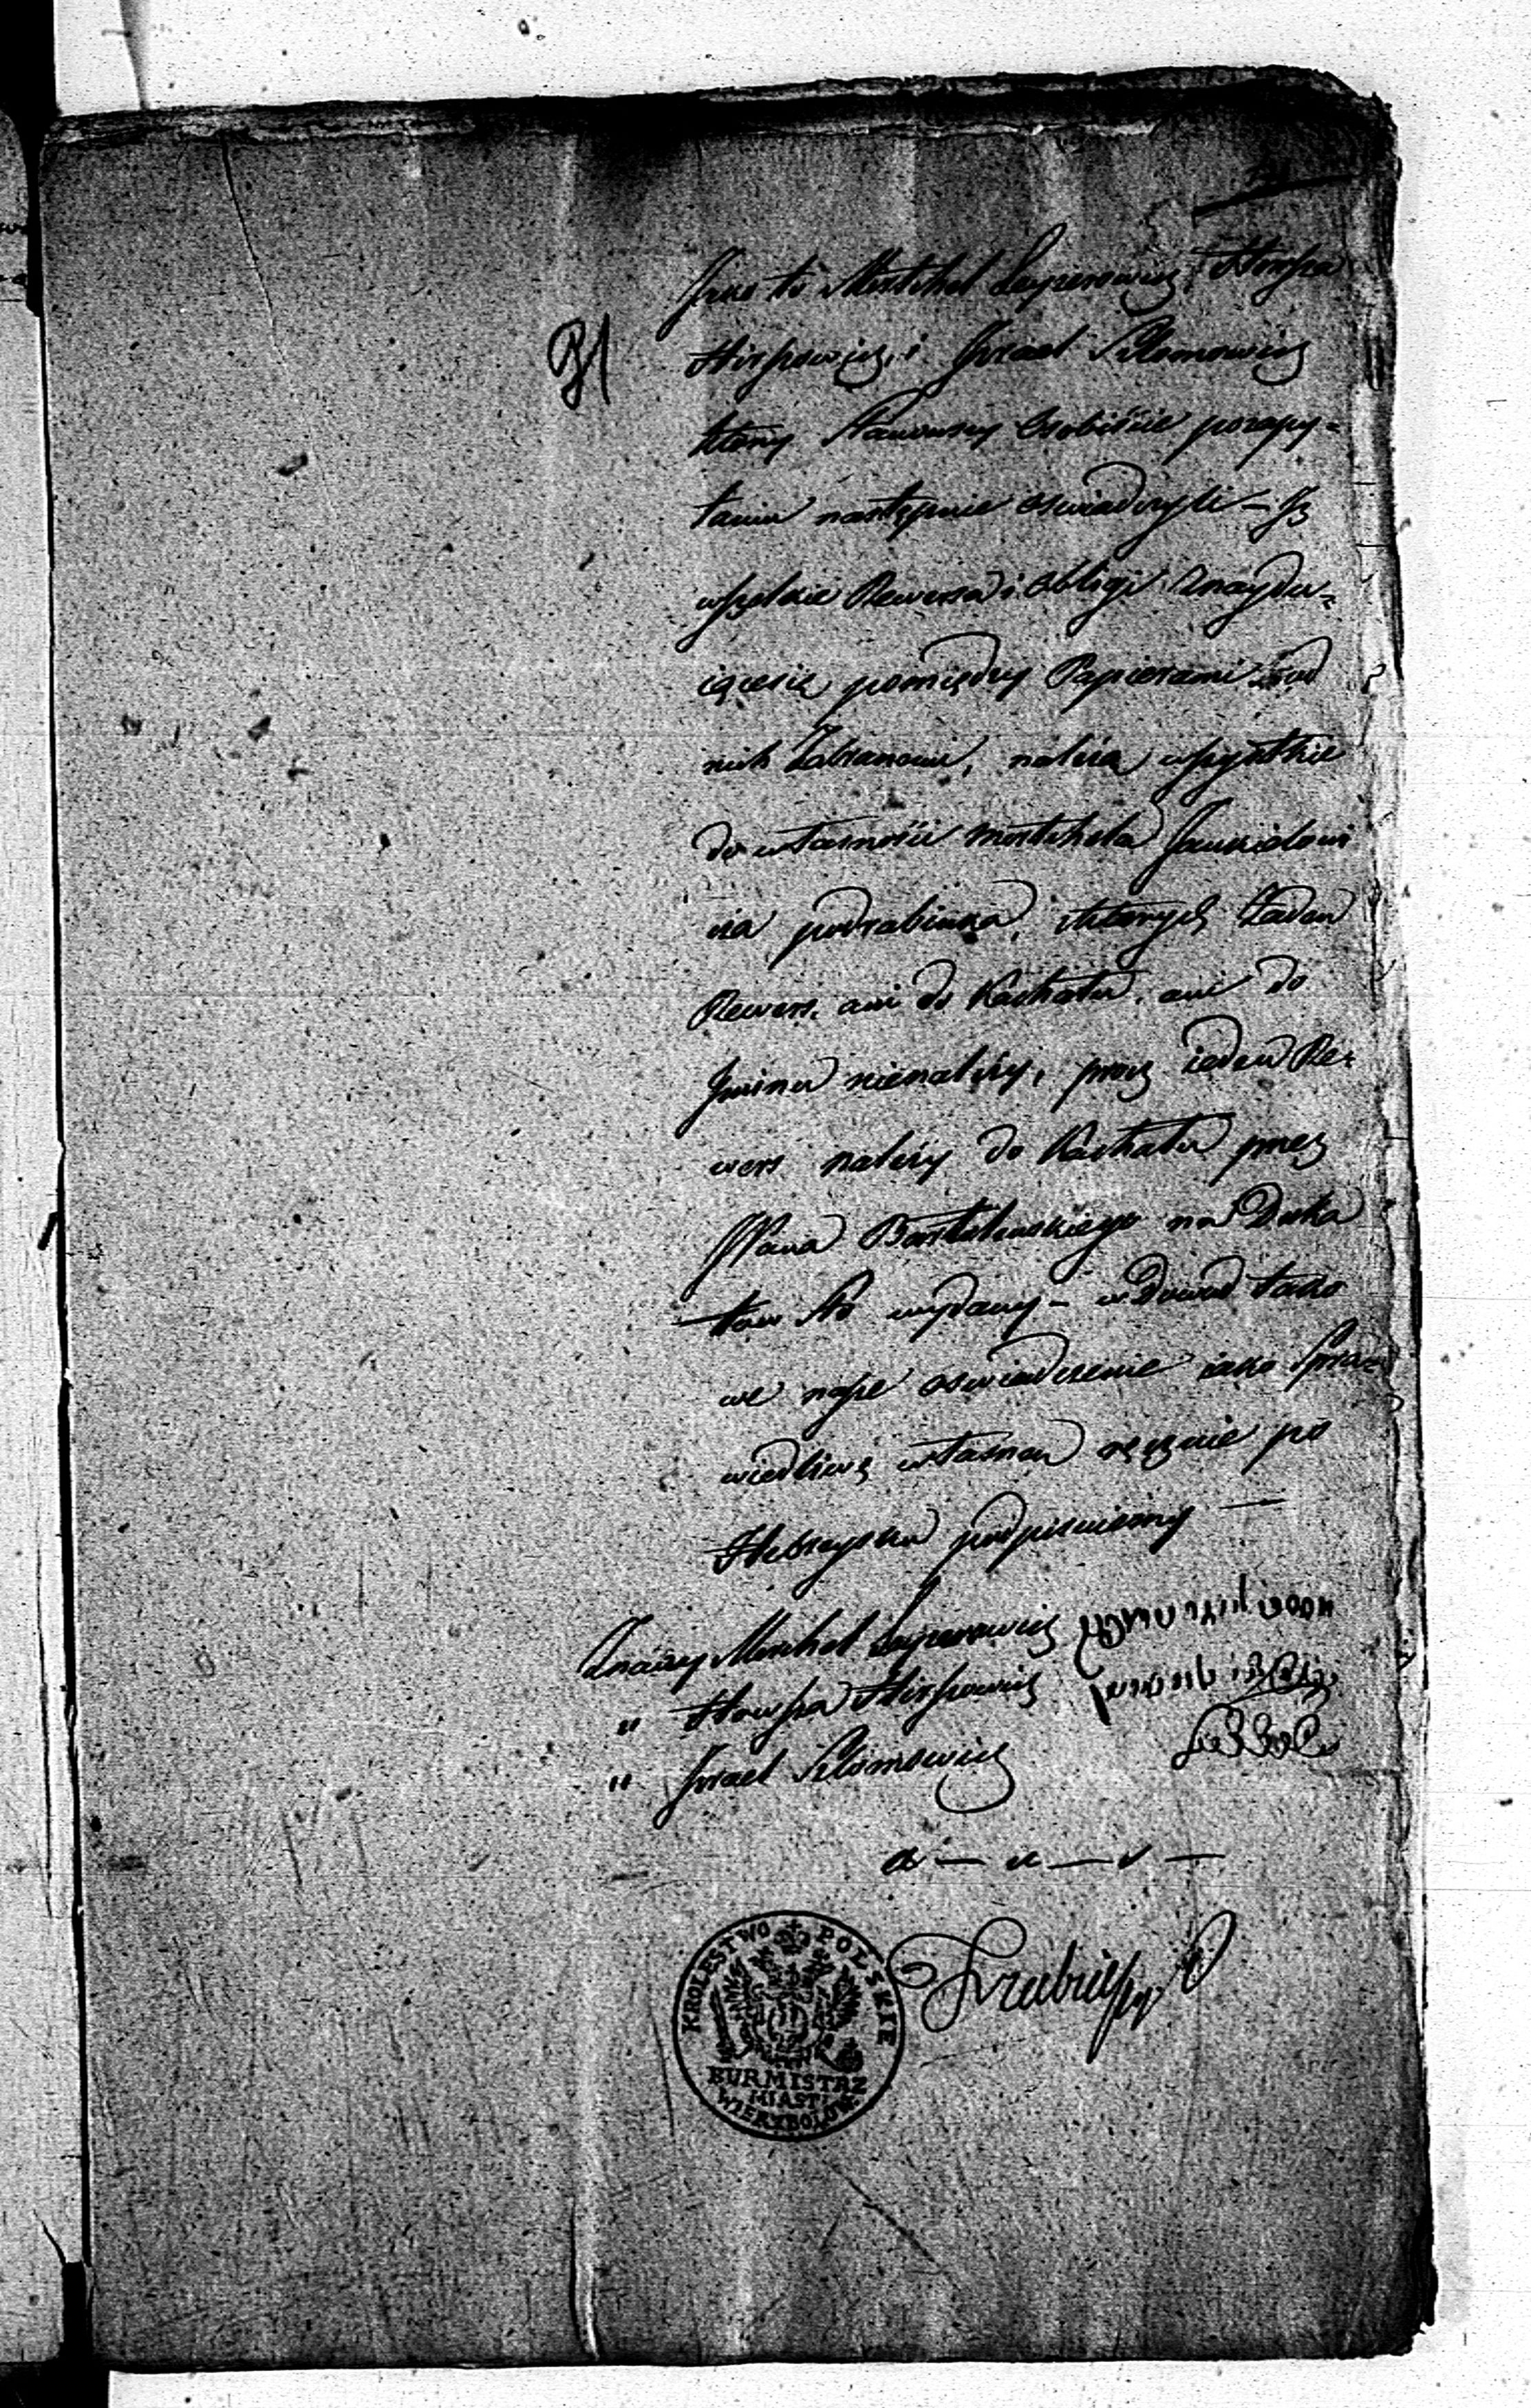 Jako to Mortchel Leyzerowicz, Howsza
Hirszowicz, i Jsrael Szlomowicz
ktorzy Stanowszy Osobiście po zapy-
taniu następnie oswiadczyli – Jż
wszelkie Rewersa i Obligi znaydu-
iącesię pomiędzy Papierami od
nich Zabranemi, należą wszystkie
do własności Mortchela Jankielowi
cza podrabinka, z ktorych żaden
Rewers, ani do Kachału, ani do
Gminu nienależy, procz ieden Re-
wers należy do Kachału przez
JPana na Duka
tow Sto wydany – w Dowod tako
we nasze oswiadczenie iako Spra-
wiedliwe własno ręcznie po
Hebraysku podpisuiemy —
Mortchel Leyzerowicz
" Howsza Hirszowicz
" Jsrael Szlomowicz
KROLESTWO POLSKIE
BURMISTRZ
MIASTA
WIERZBOŁOW